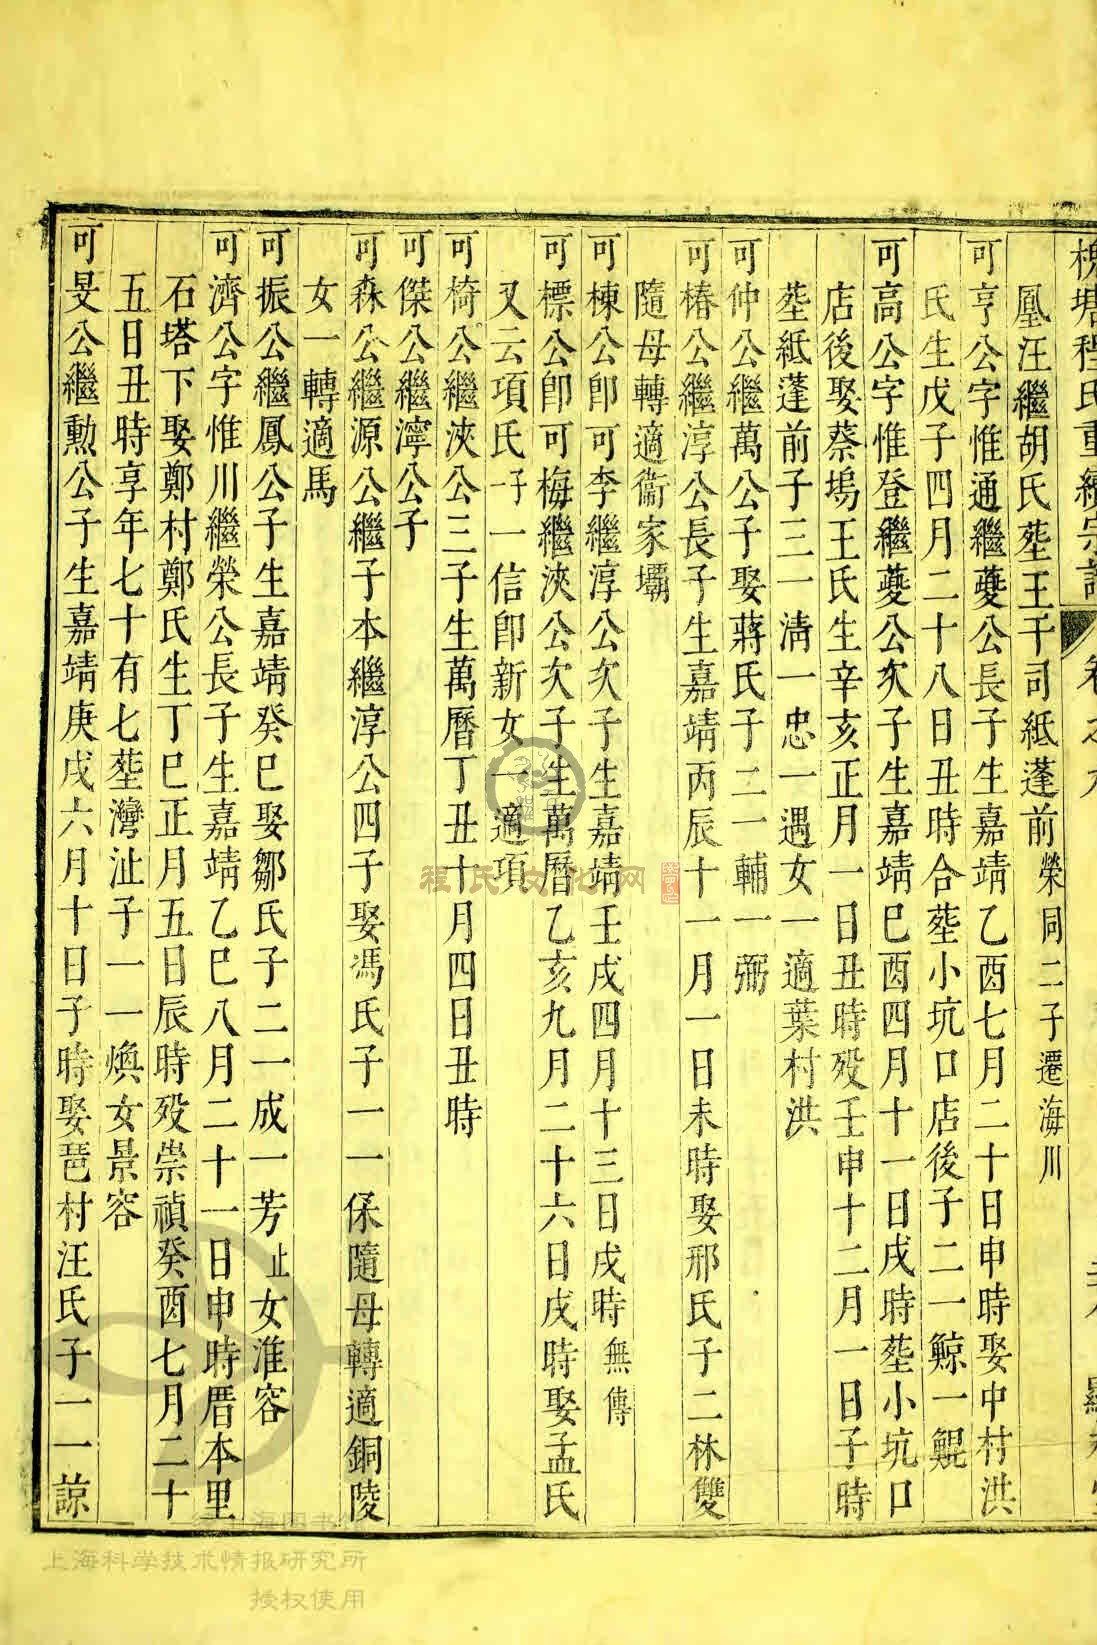 槐塘程氏重續宗譜 卷之九
凰汪繼胡氏塟王干司紙蓬前榮同二子遷海川
可亨公字惟通繼虁公長子生嘉靖乙酉七月二十日申時娶中村洪
氏生戊子四月二十八日丑時合塟小坑口店後子二一鯨一鯤
可高公字惟登繼虁公次子生嘉靖巳酉四月十一日戌時塟小坑口
店後娶蔡塢王氏生辛亥正月一日丑時殁壬申十二月一日子時
塟紙蓬前子三一清一忠一遇女一適葉村洪
可仲公繼萬公子娶蔣氏子二一輔一弼
可椿公繼淳公長子生嘉靖丙辰十一月一日未時娶邢氏子二林雙
隨母轉適衞家壩
可棟公卽可李繼淳公次子生嘉靖壬戌四月十三日戌時無傳
可標公卽可梅繼浹公次子生萬曆乙亥九月二十六日戌時娶孟氏
又云項氏子一一信卽新女一適項
可椅公繼浹公三子生萬曆丁丑十月四日丑時
可傑公繼濘公子
可森公繼源公繼子本繼淳公四子娶馮氏子一一保隨母轉適銅陵
女一轉適馬
可振公繼鳳公子生嘉靖癸巳娶鄒氏子二一成一芳止女淮容
可濟公字惟川繼榮公長子生嘉靖乙巳八月二十一日申時厝本里
石塔下娶鄭村鄭氏生丁巳正月五日辰時殁崇禎癸酉七月二十
五日丑時享年七十有七塟灣沚子一一煥女景容
可旻公繼勳公子生嘉靖庚戌六月十日子時娶琶村汪氏子一一諒
程氏文化网
上海图书馆
上海科学技术情报研究所
授权使用